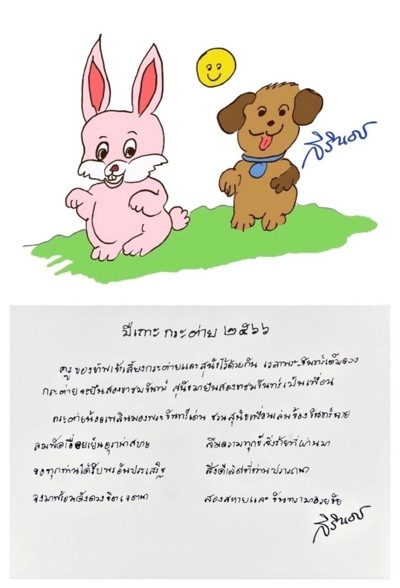 สิรินธร
ปีเถาะ กระต่าย ๒๕๖๖
ครูของข้าพเจ้าเลี้ยงกระต่ายและสุนัขไว้ด้วยกัน เวลาพระจันทร์เต็มดวง
กระต่ายจะยืนสองขาชมจันทร์ สุนัขมายืนสองขาชมจันทร์เป็นเพื่อน
กระต่ายน้อยเพลินมองพระจันทร์เด่น ชวนสุนัขเพื่อนเล่นจ้องจันทร์ฉาย
ลมพัดเรื่อยเย็นอุราพาสบาย ลืมความทุกข์สิ่งร้ายที่ผ่านมา
ขอทุกท่านได้รับพรอันประเสริฐ สิ่งดีเลิศที่ท่านปรารถนา
จงมาพร้อมดั่งดวงจิตเจตนา สองสหายและจันทรามาอวยชัย
สิรินธร